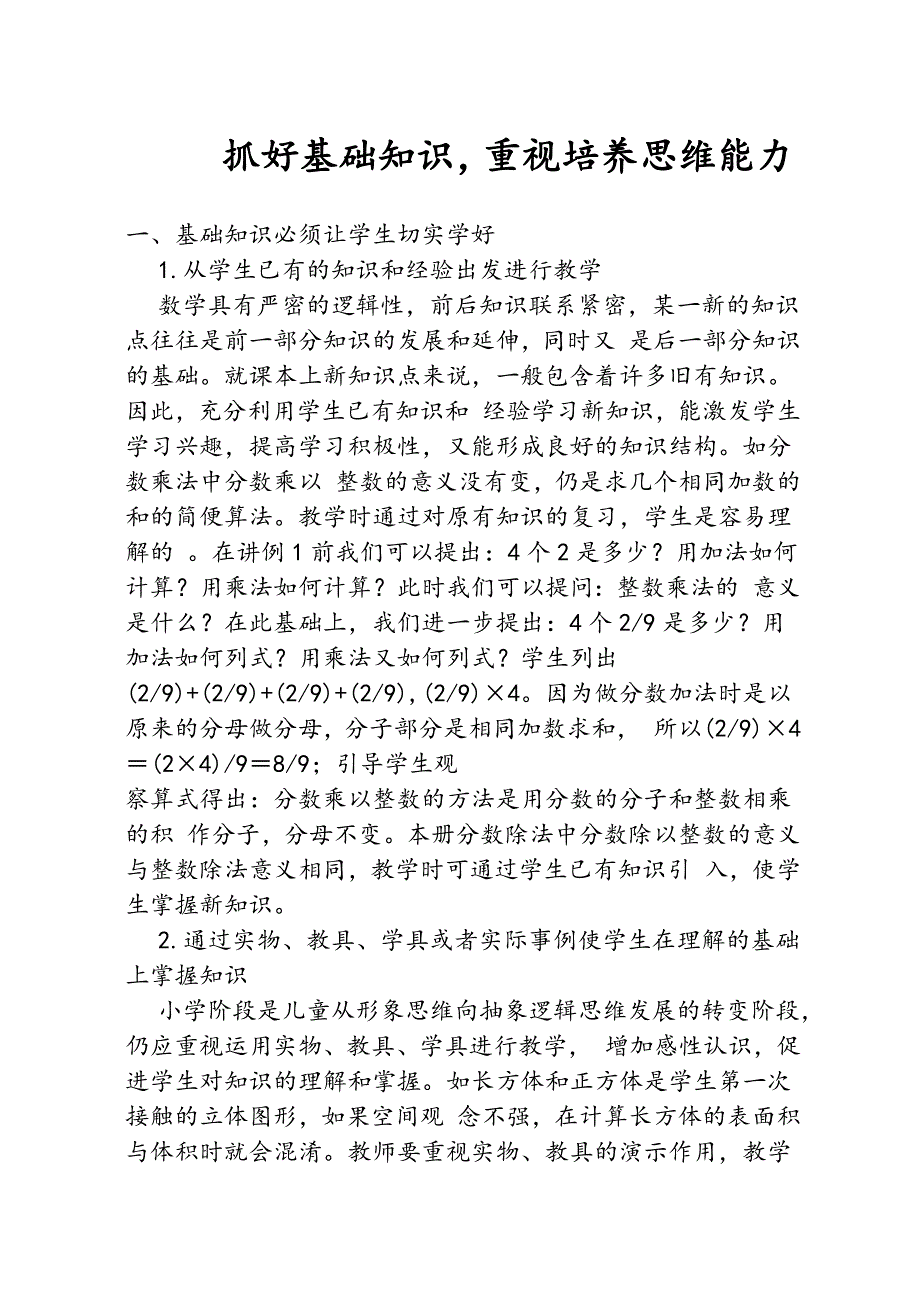 抓好基础知识，重视培养思维能力
一、基础知识必须让学生切实学好
1.从学生已有的知识和经验出发进行教学
数学具有严密的逻辑性，前后知识联系紧密，某一新的知识
点往往是前一部分知识的发展和延伸，同时又 是后一部分知识
的基础。就课本上新知识点来说，一般包含着许多旧有知识。
因此，充分利用学生已有知识和 经验学习新知识，能激发学生
学习兴趣，提高学习积极性，又能形成良好的知识结构。如分
数乘法中分数乘以 整数的意义没有变，仍是求几个相同加数的
和的简便算法。教学时通过对原有知识的复习，学生是容易理
解的 。在讲例1前我们可以提出：4个2是多少？用加法如何
计算？用乘法如何计算？此时我们可以提问：整数乘法的 意义
是什么？在此基础上，我们进一步提出：4个2/9是多少？用
加法如何列式？用乘法又如何列式？学生列出
(2/9)+(2/9)+(2/9)+(2/9),(2/9)×4。因为做分数加法时是以
原来的分母做分母，分子部分是相同加数求和， 所以(2/9)×4
＝(2×4)/9＝8/9；引导学生观
察算式得出：分数乘以整数的方法是用分数的分子和整数相乘
的积 作分子，分母不变。本册分数除法中分数除以整数的意义
与整数除法意义相同，教学时可通过学生已有知识引 入，使学
生掌握新知识。
2.通过实物、教具、学具或者实际事例使学生在理解的基础
上掌握知识
小学阶段是儿童从形象思维向抽象逻辑思维发展的转变阶段，
仍应重视运用实物、教具、学具进行教学， 增加感性认识，促
进学生对知识的理解和掌握。如长方体和正方体是学生第一次
接触的立体图形，如果空间观 念不强，在计算长方体的表面积
与体积时就会混淆。教师要重视实物、教具的演示作用，教学